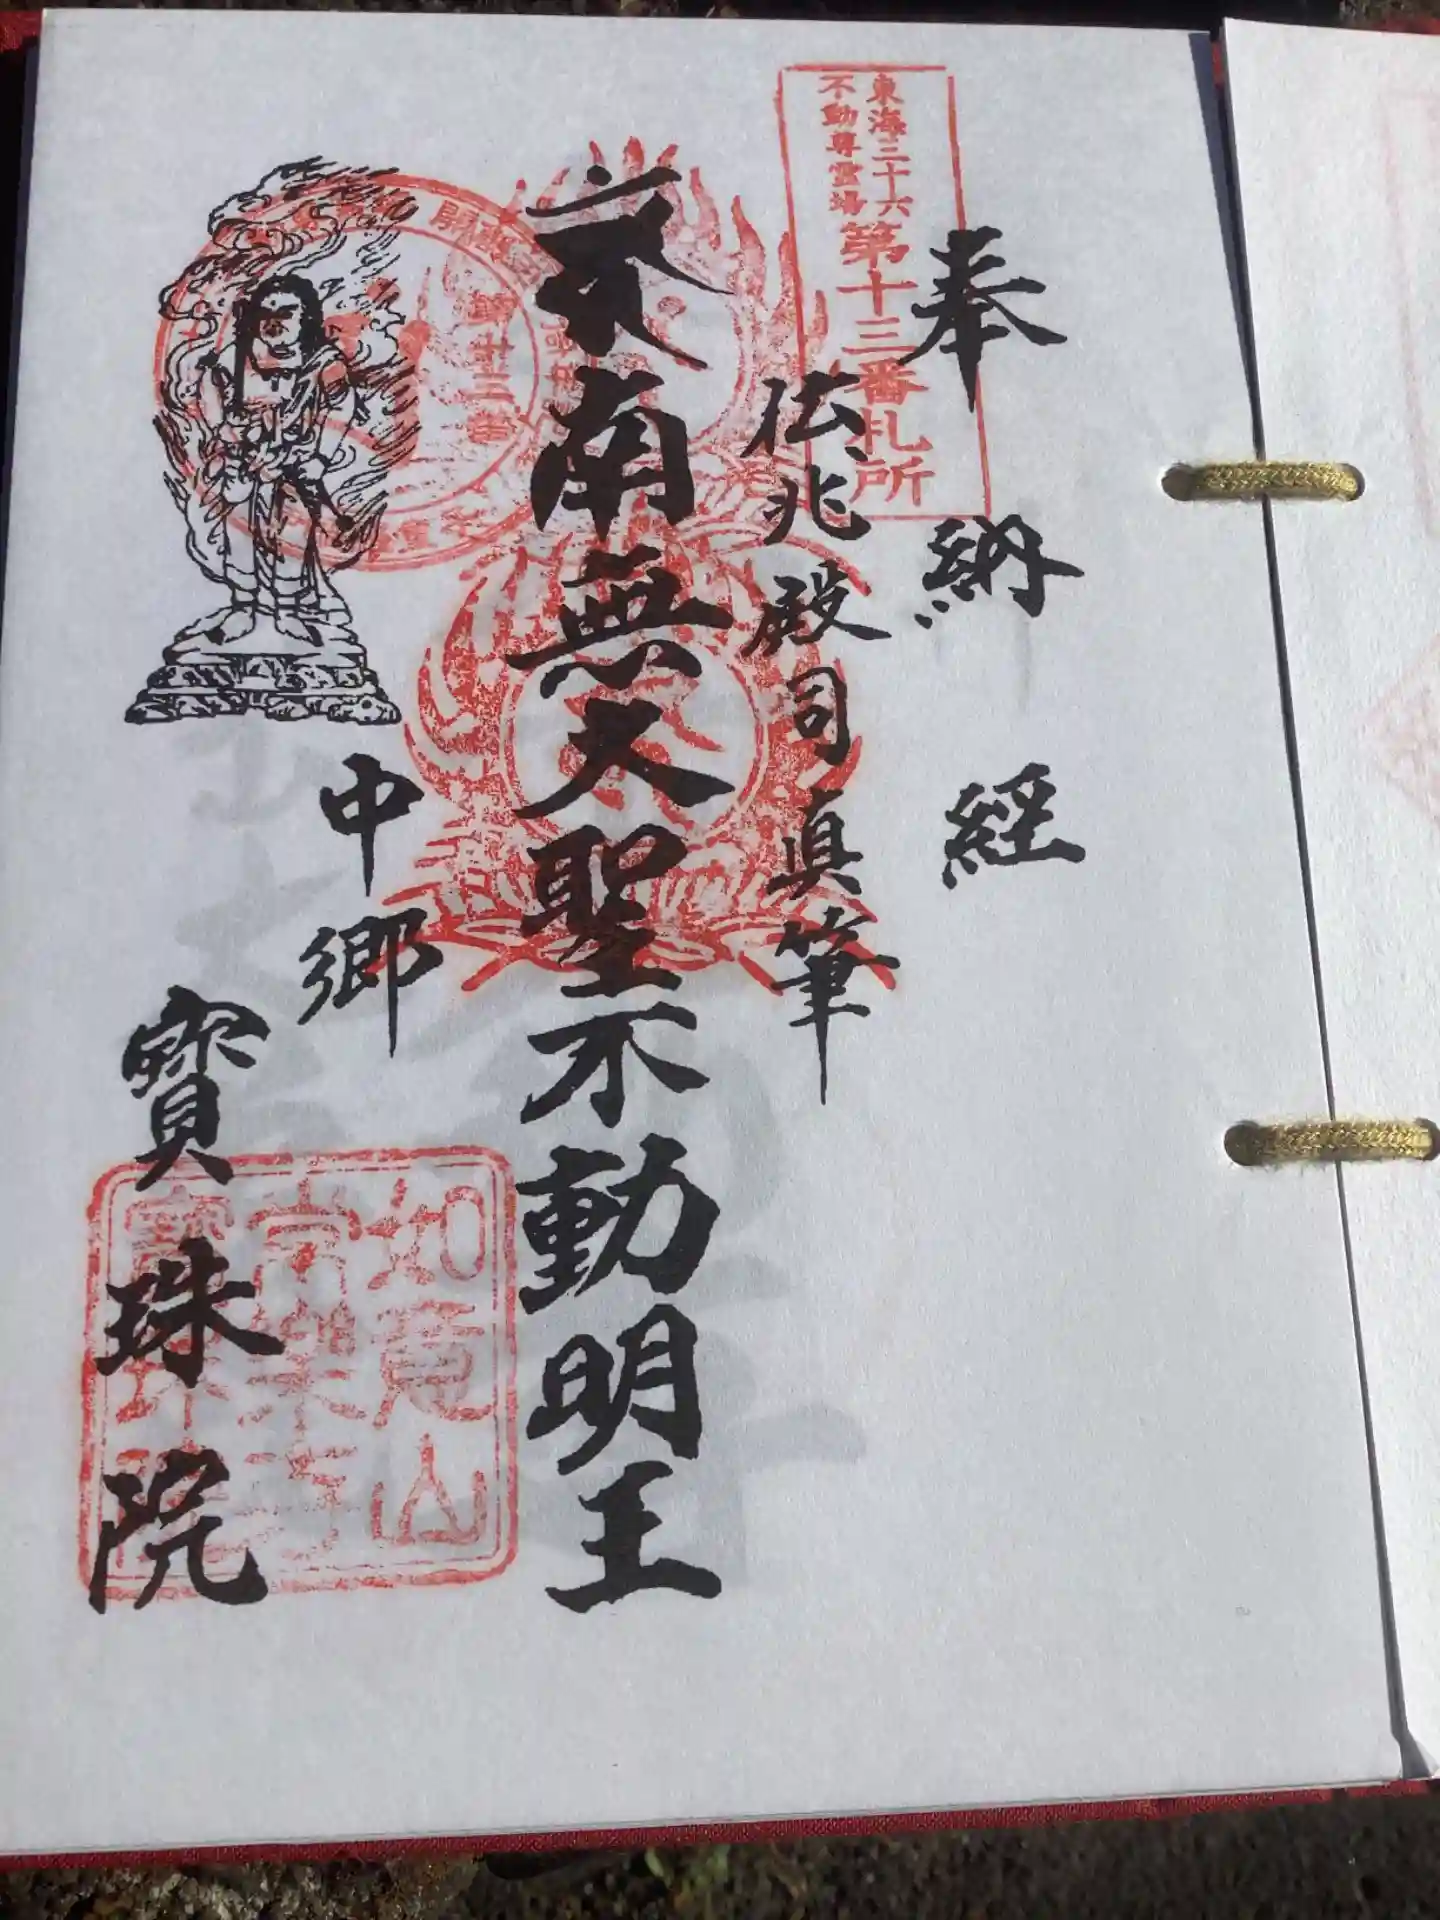 奉納経
東海三十六
不動尊霊場
第十三番札所
仏兆殿司真筆
南無大聖不動明王
中郷
寳珠院
如意山
常楽寺